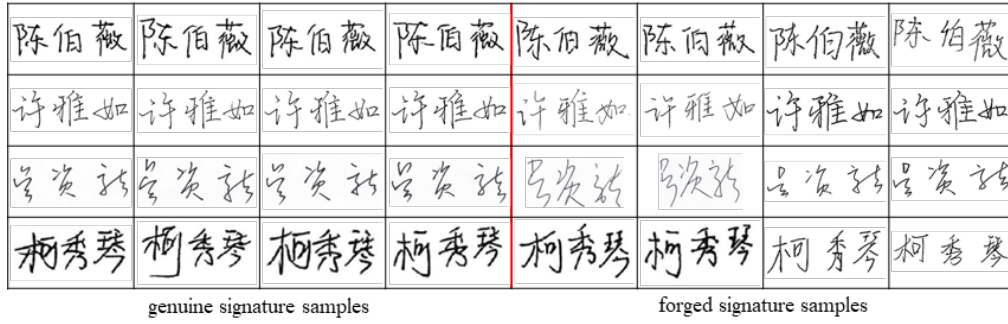 陈伯薇 陈伯薇 陈伯薇 陈伯薇 陈伯薇 陈伯薇 陈伯薇 陈伯薇
许雅如 许雅如 许雅如 许雅如 许雅如 许雅如 许雅如 许雅如
吴资龙 吴资龙 吴资龙 吴资龙 吴资龙 吴资龙 吴资龙 吴资龙
柯秀琴 柯秀琴 柯秀琴 柯秀琴 柯秀琴 柯秀琴 柯秀琴 柯秀琴
genuine signature samples forged signature samples